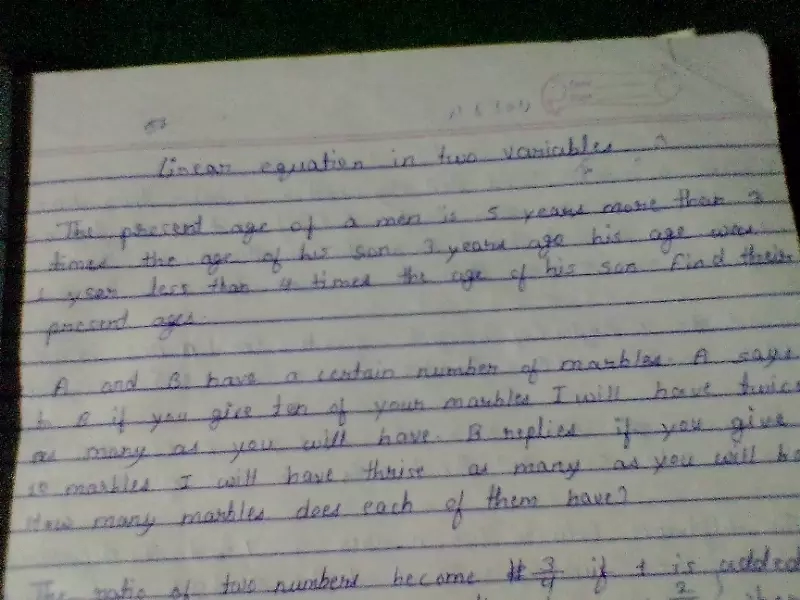 Linear equation in two variables
The present age of a men is 5 years more than 3
times the age of his son. 3 years ago his age was
1 year less than 4 times the age of his son Find their
present ages.
A and B have a certain number of marbles. A says
to B if you give ten of your marbles I will have twice
as many as you will have. B replies if you give
10 marbles I will have thrise as many as you will ha
How many marbles does each of them have?
The ratio of two numbers become 3/4 if 1 is added
2